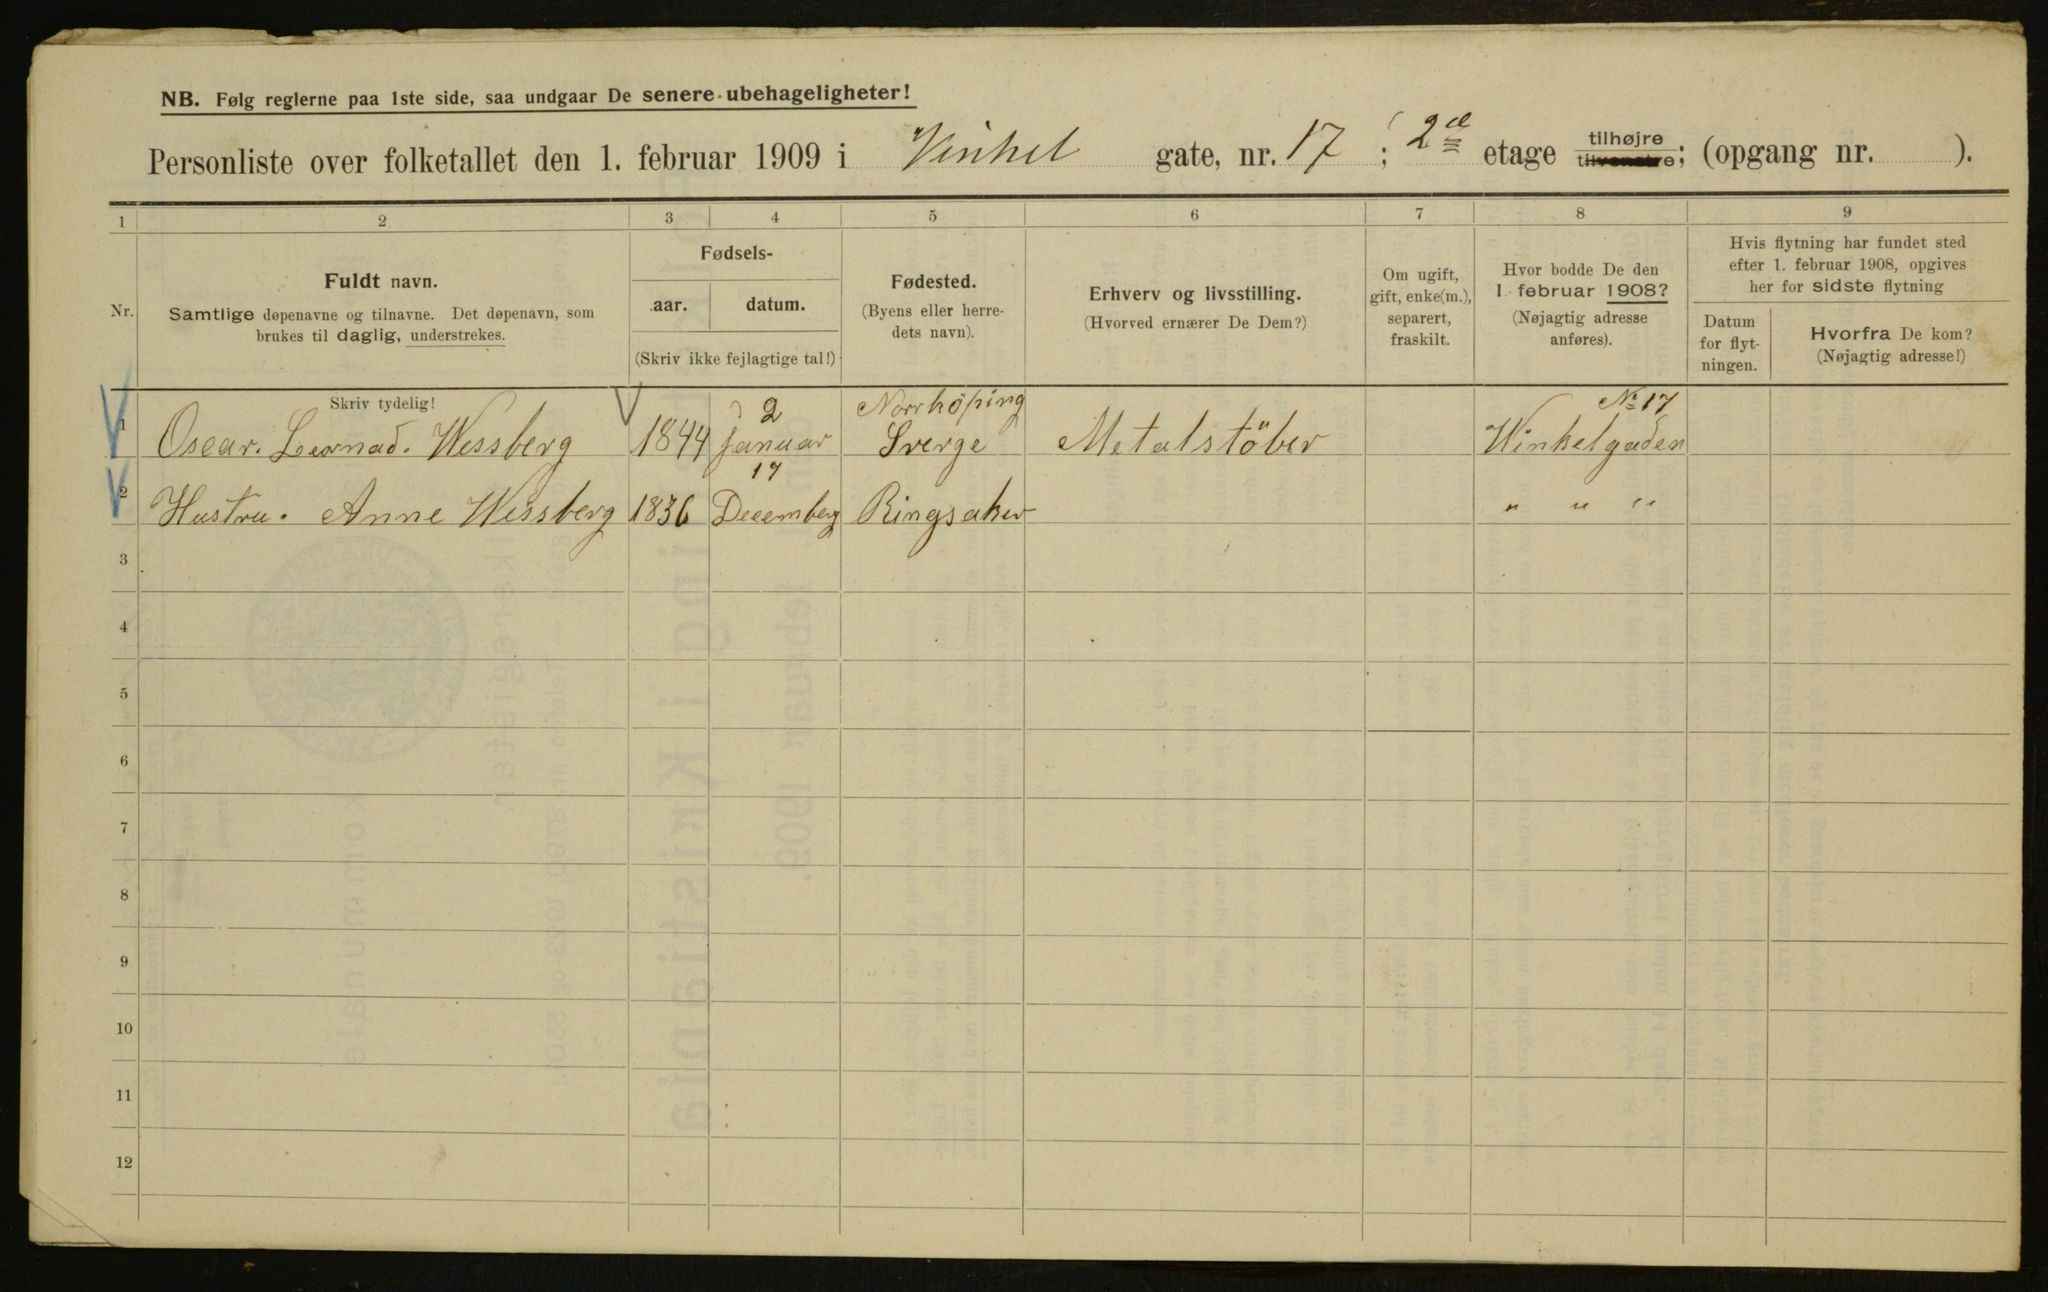 NB. Følg reglerne paa 1ste side, saa undgaar De senere ubehageligheter!
Personliste over folketallet den 1. februar 1909 i Vinkel gate, nr. 17 ; 2den etage tilhøjre tilvenstre; (opgang nr. ).
1 2 3 4 5 6 7 8 9
Nr.
Fuldt navn.
Samtlige døpenavne og tilnavne. Det døpenavn, som
brukes til daglig, understrekes.
Fødsels-
aar. datum.
(Skriv ikke fejlagtige tal!)
Fødested.
(Byens eller herre-
dets navn).
Erhverv og livsstilling.
(Hvorved ernærer De Dem?)
Om ugift,
gift, enke(m.),
separert,
fraskilt.
Hvor bodde De den
1. februar 1908?
(Nøjagtig adresse
anføres).
Hvis flytning har fundet sted
efter 1. februar 1908, opgives
her for sidste flytning
Datum
for flyt-
ningen.
Hvorfra De kom?
(Nøjagtig adresse!)
Skriv tydelig!
2 Norrköping No 17
1 Oscar. Lernad. Wessberg 1844 januar Sverge Metalstöber Winkelgaden
17
2 Hustru. Anne Wessberg 1836 Decemberg Ringsaker " " "
3
4
5
6
7
8
9
10
11
12